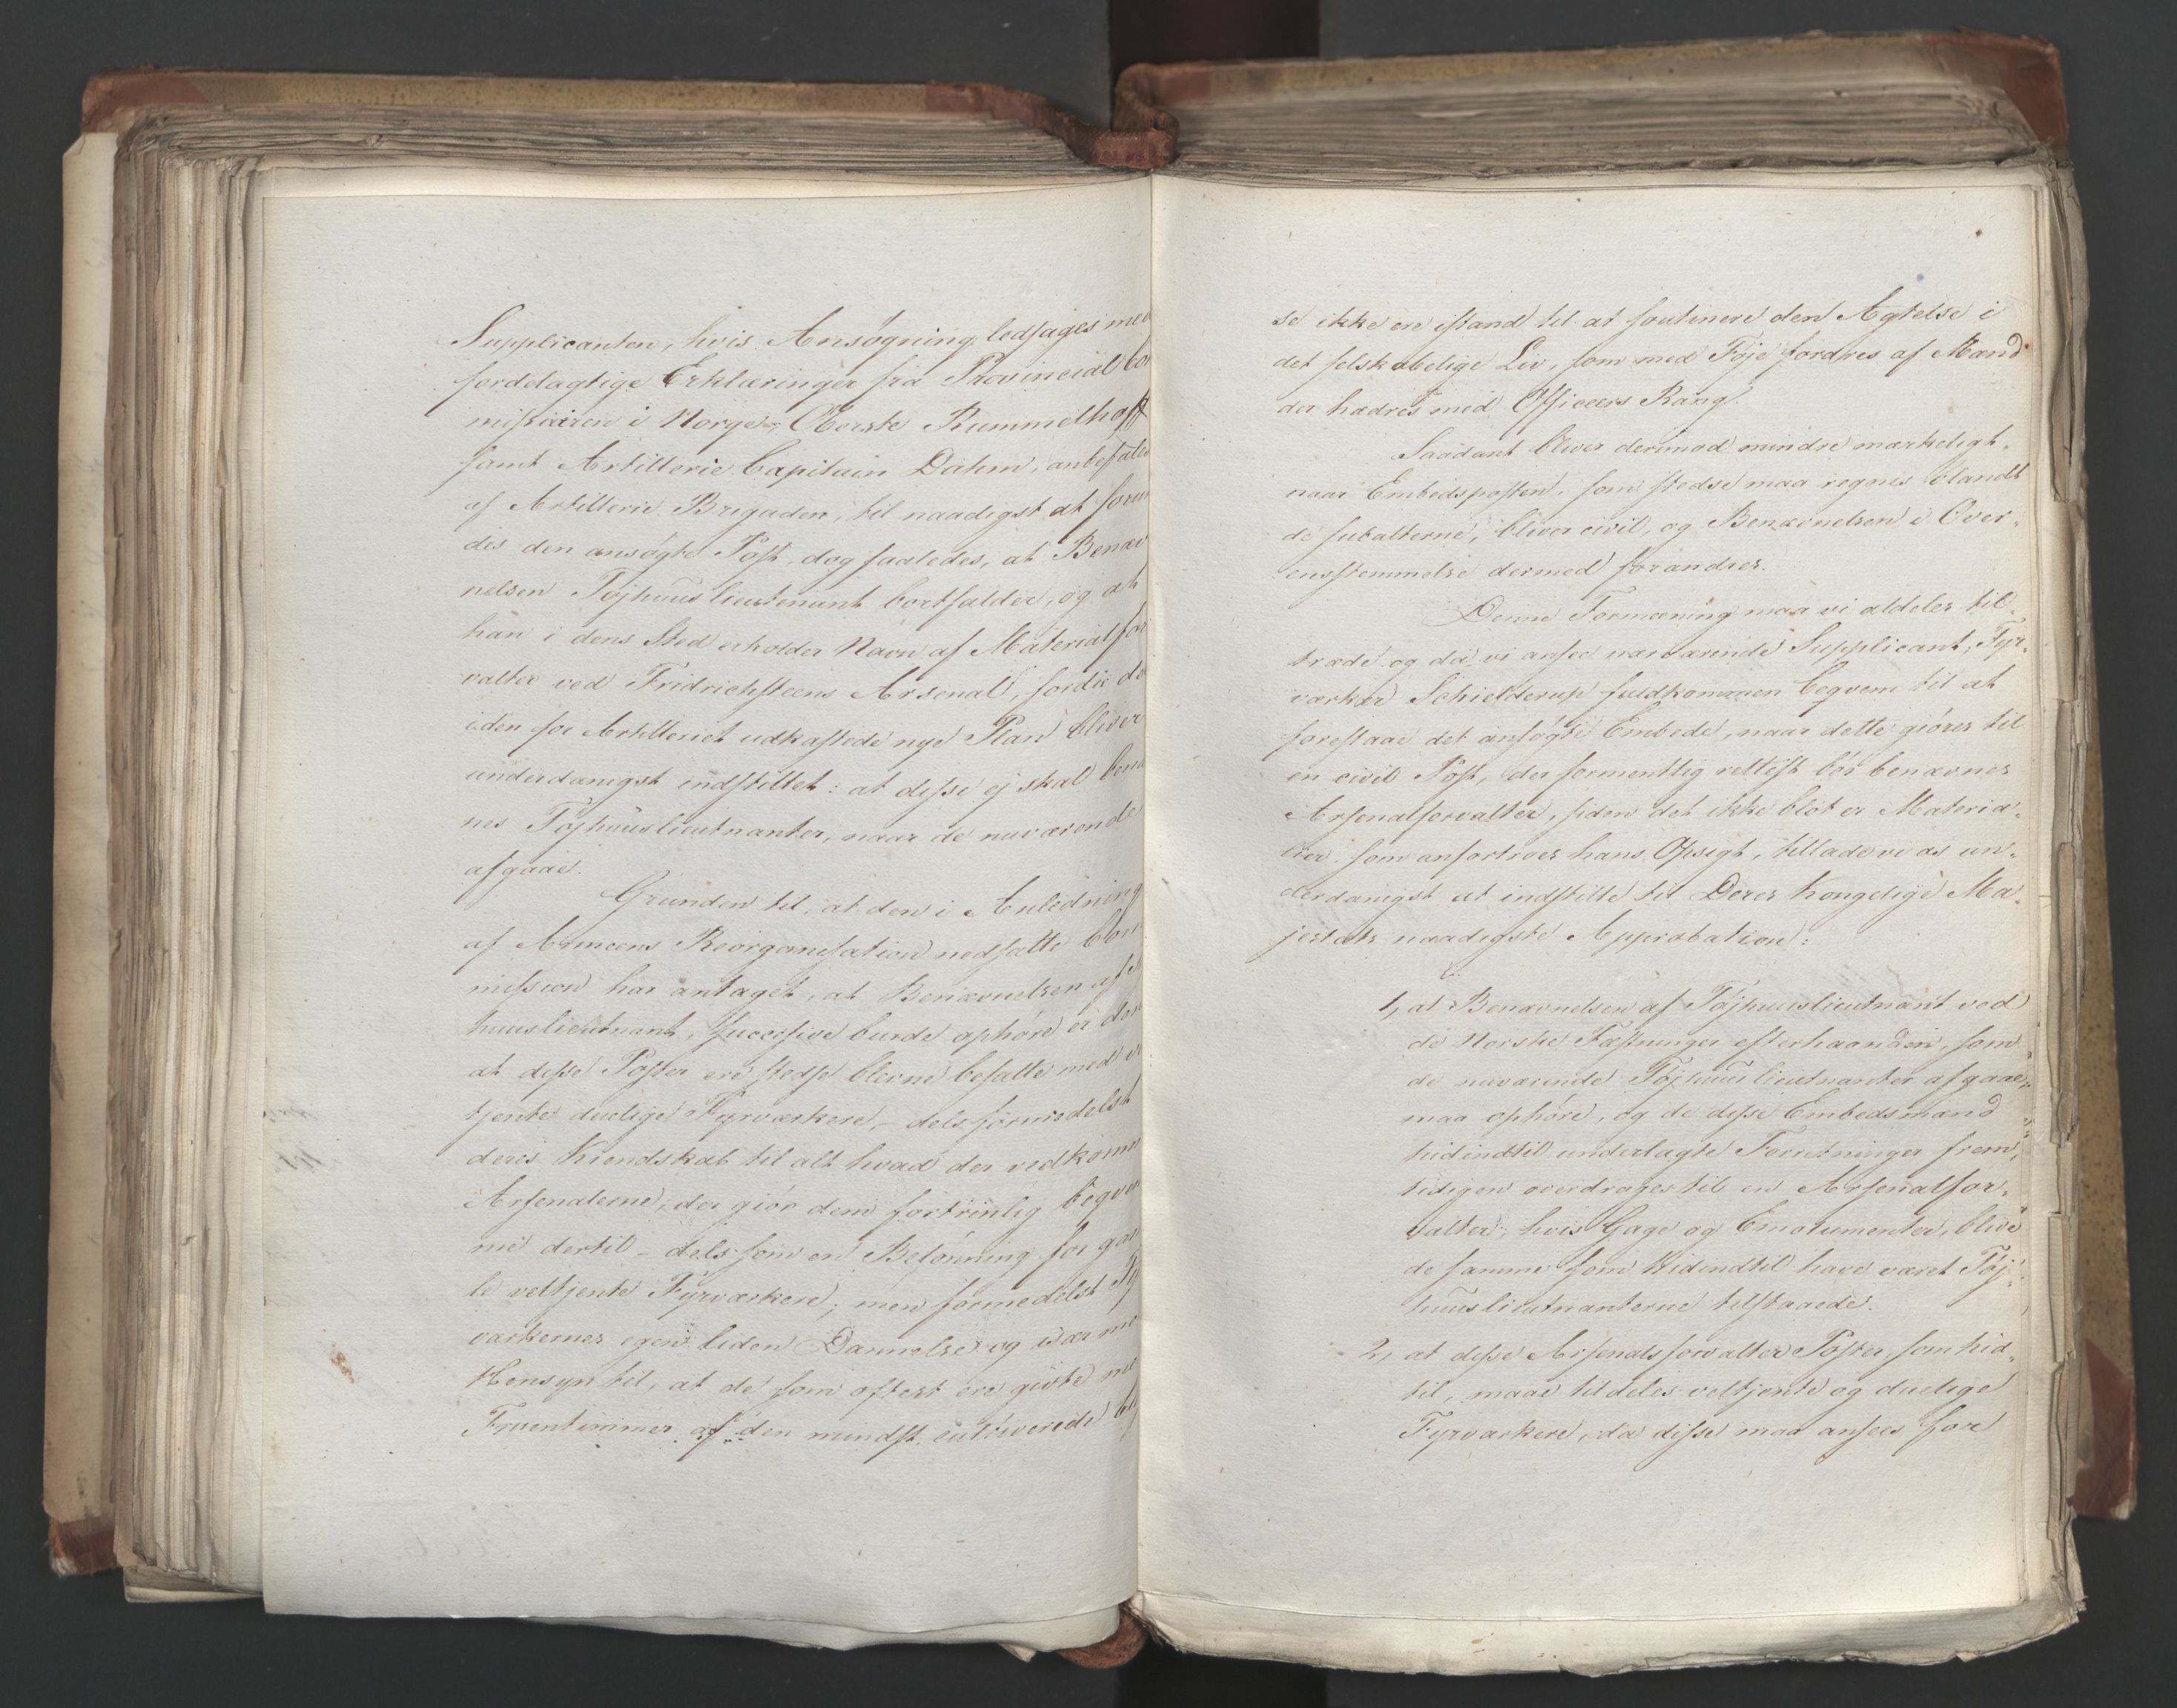 Supplicanten, hvis Ansøgning ledsages med
fordelagtige Erklæringer fra Provincial Co
missairen i Norge, Oberste Rummelhoff
samt Artillerie Capitain Dahm, anbefales
af Artillerie Brigaden, til naadigst at forun
des den ansøgte Post, dog saaledes, at Benæv
nelsen Tøjhuuslieutenant bortfalder, og at
han i dens Sted erholder Navn af Materialfor
valter ved Fridrichsteens Arsenal, fordie de
i den for Artilleriet udkastede nye Plan bliver
underdanigst indstillet: at disse ej skal benæ
nes Tøjhuuslieutnanter, naar de nuværende
afgaae.
Grunden til, at den i Anledning
af Armeens Reorganisation nedsatte Com
mission har antaget, at Benævnelsen af
huuslieutnant, successive burde ophøre er den
at disse Poster ere stedse blevne besatte med
tjente duelige Fyrværkere, - dels formedelst
deres Kiendskab til alt hvad der vedkomm
Arsenalerne, der giør dem fortrinlig beqve
me dertil - dels som en Belønning for gam
le veltjente Fyrværkere; men formedelst Fyr
værkernes egen liden Dannelse og især me
Hensyn til, at de som oftest ere givte med
Fruentimmer af den mindst cultiverede
se ikke ere istand til at soutinere den Agtelse i
det selskabelige Liv, som med Føje fordres af Mænd
der hædres med Officeers Rang.
Saadant bliver derimod mindre mærkeligt,
naar Embedsposten, som stedse maa regnes blandt
de subalterne, bliver civil, og Benævnelsen i Over-
ensstemmelse dermed forandres.
Denne Formeening maa vi aldeles til-
træde og da vi ansee nærværende Supplicant, Fyr-
værker Schielderup fuldkommen beqvem til at
forestaae det ansøgte Embede, naar dette giøres til
en civil Post, der formentlig rettest bør benævnes
Arsenalforvalter, siden det ikke blot er Materia-
lier som anfortroes hans Opsigt, tillade vi os un-
derdanigst at indstille til Deres Kongelige Ma-
jestæts naadigste Approbation:
1, at Benævnelsen af Tøjhuuslieutnant ved
de Norske Fæstninger efterhaanden, som
de nuværende Tøjhuuslieutnanter afgaae,
maa ophøre, og de disse Embedsmænd
hidindtil underlagte Forretninger frem-
tidigen overdrages til en Arsenalfor-
valter, hvis Gage og Emolumenter, blive
de samme som hidindtil have været Tøj-
huuslieutnanterne tilstaaede.
2, at disse Arsenalsforvalter Poster, som hid-
til, maae tildeles veltjente og duelige
Fyrværkere, da disse maa ansees for